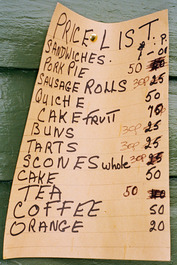 PRICE LIST.
£. P.
SANDWICHES. 1-01
PORK PIE 50
SAUSAGE ROLLS 30p 25
QUICHE 50
CAKE FRUIT 75
BUNS 30p 25
TARTS 30p 25
SCONES whole 30p
CAKE 50
TEA 50
COFFEE 50
ORANGE 20